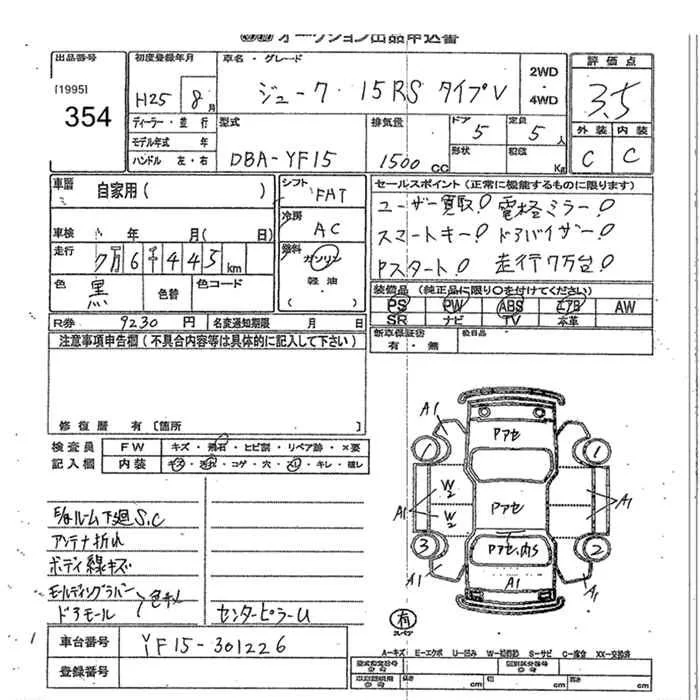 オークション出品申込書
出品番号 [1995] 354
初度登録年月 H25 8月
車名・グレード ジューク 15RS タイプV
2WD・4WD
評価点 3.5
外装 C 内装 C
ディーラー・並行
モデル年式 年
ハンドル 左・右
型式 DBA-YF15
排気量 1500 CC
ドア 5 定員 5人
形状 積載 Kg
車歴 自家用( )
車検 年 月( 日)
走行 7万6千445km
色 黒 色替 色コード
シフト FAT
冷房 AC
燃料 ガソリン 軽油
セールスポイント(正常に機能するものに限ります)
ユーザー買取! 電格ミラー!
スマートキー! ドアバイザー!
Pスタート! 走行7万台!
装備品(純正品に限り○を付けてください)
PS PW ABS エアB AW
SR ナビ TV 本革
新車保証書 有・無
R券 9230円 名変通知期限 月 日
注意事項申告欄(不具合内容等は具体的に記入して下さい)
修復歴 有〔箇所
検査員記入欄
FW キズ・飛石・ヒビ割・リペア跡・×要
内装 キズ・汚れ・コゲ・穴・スレ・キレ・破れ
E/gルーム下廻S,C
アンテナ折れ
ボディ線キズ
モールディングラバー
ドアモール
センターピラーU
A1
Pアセ
1 1
W2 Pアセ
A1 W2 A1
3 Pアセ,内S 2
A1 A1 A1
有 スペア
車台番号 YF15-301226
登録番号
A-キズ E-エクボ U-凹み W-補修跡 S-サビ C-腐食 XX-交換済
型式指定番号 類別区分番号
長さ cm 幅 cm 高さ cm